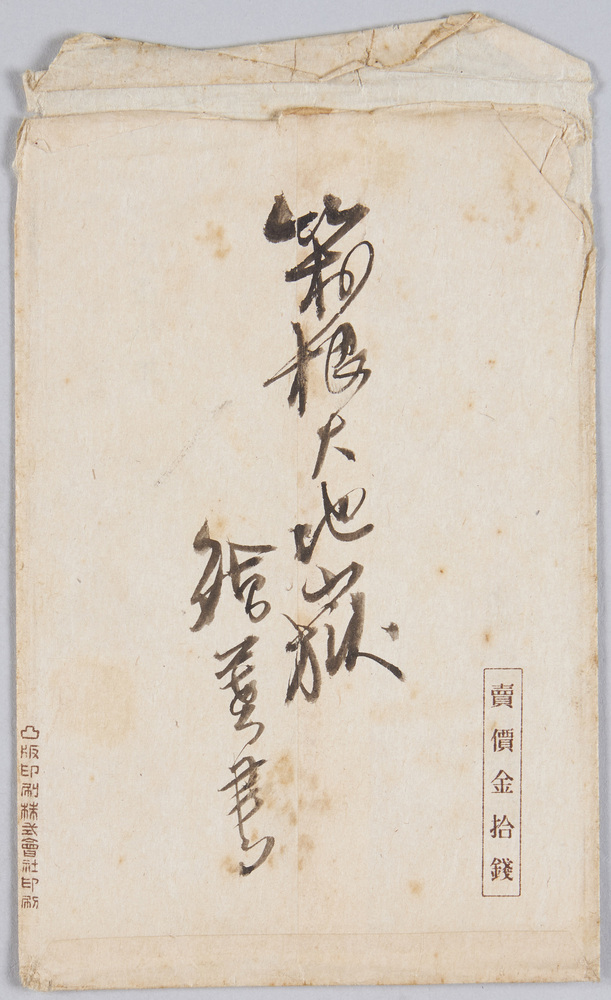 賣價金拾錢
箱根大地嶽
繪葉書
凸版印刷株式會社印刷